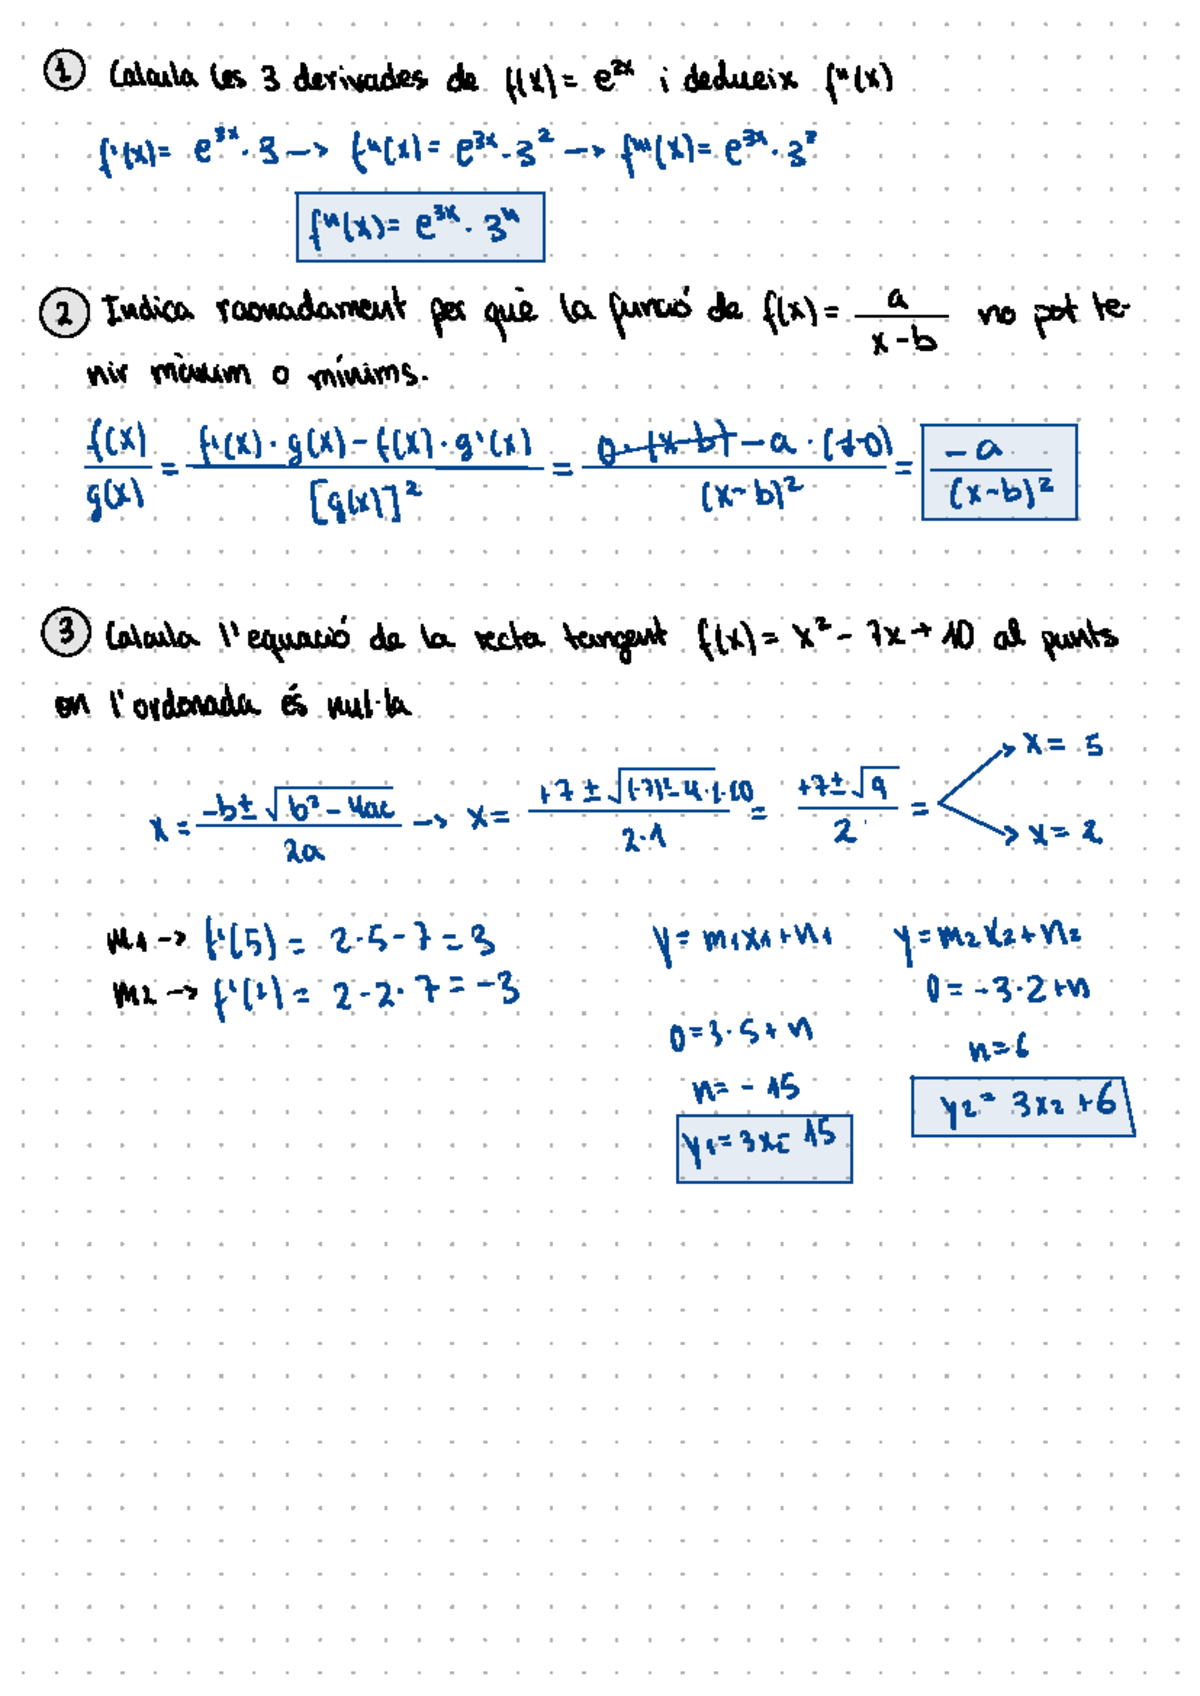 1 Calcula les 3 derivades de f(x) = e^2x i dedueix fⁿ(x)
f'(x) = e^3x · 3 —> f"(x) = e^3x · 3^2 —> f'''(x) = e^3x · 3^3
fⁿ(x) = e^3x · 3ⁿ
2 Indica raonadament per què la funció de f(x) = a/(x-b) no pot te-
nir màxim o mínims.
f(x)/g(x) = (f'(x) · g(x) - f(x) · g'(x))/[g(x)]^2 = (0 · (x-b) - a · (1-0))/(x-b)^2 = -a/(x-b)^2
3 Calcula l'equació de la recta tangent f(x) = x^2 - 7x + 10 al punts
on l'ordonada és nul·la
x = (-b ± √(b^2 - 4ac))/2a —> x = (+7 ± √((-7)^2 - 4·1·10))/(2·1) = (+7 ± √9)/2 = x = 5
x = 2
m1 -> f'(5) = 2·5-7 = 3
m2 -> f'(2) = 2-2·7 = -3
y = m1x1 + n1
0 = 3·5 + n
n = -15
y1 = 3x - 15
y = m2x2 + n2
0 = -3·2 + n
n = 6
y2 = 3x2 + 6